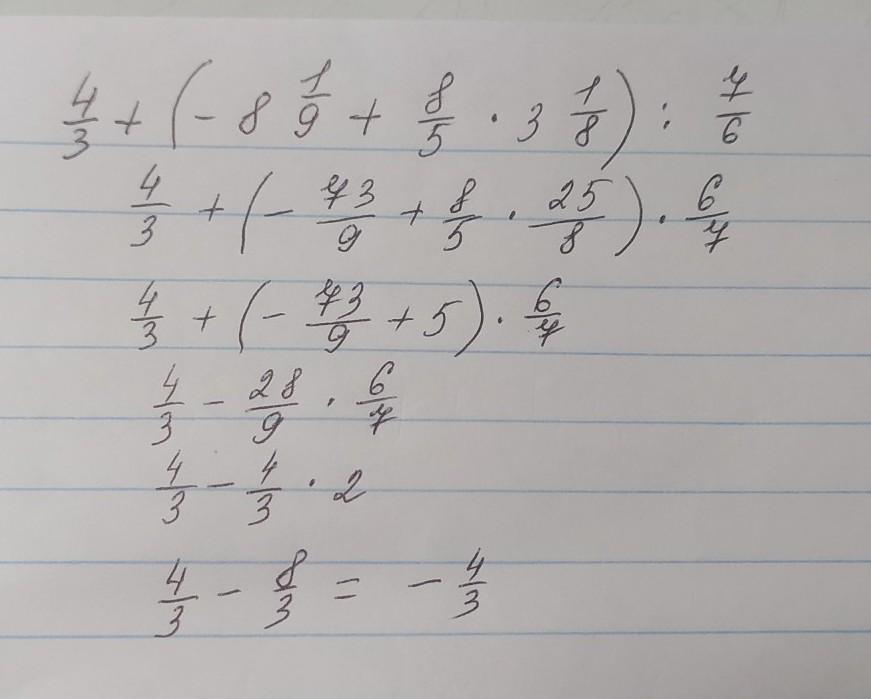 4/3 + (- 8 1/9 + 8/5 · 3 1/8) : 7/6
4/3 + (- 73/9 + 8/5 · 25/8) · 6/7
4/3 + (- 73/9 + 5) · 6/7
4/3 - 28/9 · 6/7
4/3 - 4/3 · 2
4/3 - 8/3 = - 4/3